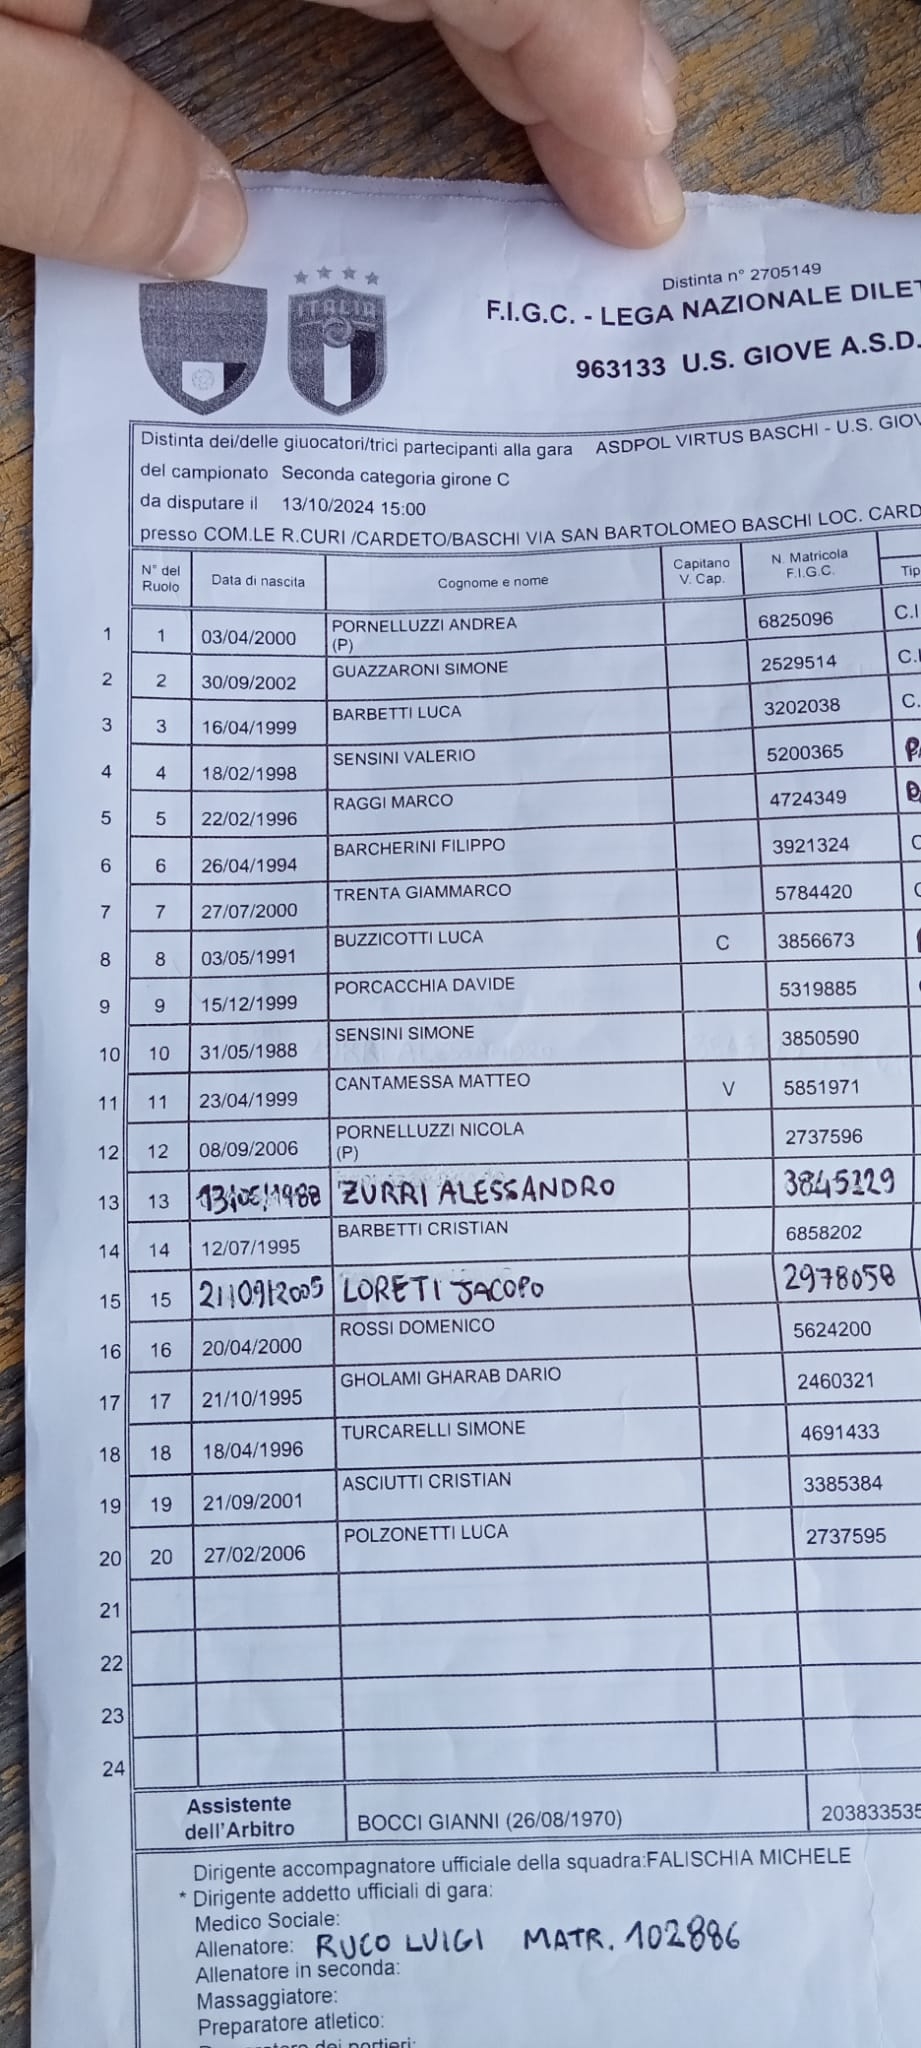 ITALIA
Distinta n° 2705149
F.I.G.C. - LEGA NAZIONALE DILET
963133 U.S. GIOVE A.S.D.
Distinta dei/delle giuocatori/trici partecipanti alla gara ASDPOL VIRTUS BASCHI - U.S. GIOV
del campionato Seconda categoria girone C
da disputare il 13/10/2024 15:00
presso COM.LE R.CURI /CARDETO/BASCHI VIA SAN BARTOLOMEO BASCHI LOC. CARD
N° del Ruolo Data di nascita Cognome e nome Capitano V. Cap. N. Matricola F.I.G.C. Tip
1 1 03/04/2000 PORNELLUZZI ANDREA (P) 6825096 C.I
2 2 30/09/2002 GUAZZARONI SIMONE 2529514 C.I
3 3 16/04/1999 BARBETTI LUCA 3202038 C.
4 4 18/02/1998 SENSINI VALERIO 5200365
5 5 22/02/1996 RAGGI MARCO 4724349
6 6 26/04/1994 BARCHERINI FILIPPO 3921324 C
7 7 27/07/2000 TRENTA GIAMMARCO 5784420 C
8 8 03/05/1991 BUZZICOTTI LUCA C 3856673
9 9 15/12/1999 PORCACCHIA DAVIDE 5319885
10 10 31/05/1988 SENSINI SIMONE 3850590
11 11 23/04/1999 CANTAMESSA MATTEO V 5851971
12 12 08/09/2006 PORNELLUZZI NICOLA (P) 2737596
13 13 ZURRI ALESSANDRO
14 14 12/07/1995 BARBETTI CRISTIAN 6858202
15 15 21/09/2005 LORETI JACOPO 2978058
16 16 20/04/2000 ROSSI DOMENICO 5624200
17 17 21/10/1995 GHOLAMI GHARAB DARIO 2460321
18 18 18/04/1996 TURCARELLI SIMONE 4691433
19 19 21/09/2001 ASCIUTTI CRISTIAN 3385384
20 20 27/02/2006 POLZONETTI LUCA 2737595
21
22
23
24
Assistente dell'Arbitro BOCCI GIANNI (26/08/1970) 203833535
Dirigente accompagnatore ufficiale della squadra:FALISCHIA MICHELE
* Dirigente addetto ufficiali di gara:
Medico Sociale:
Allenatore: RUCO LUIGI MATR. 102886
Allenatore in seconda:
Massaggiatore:
Preparatore atletico: